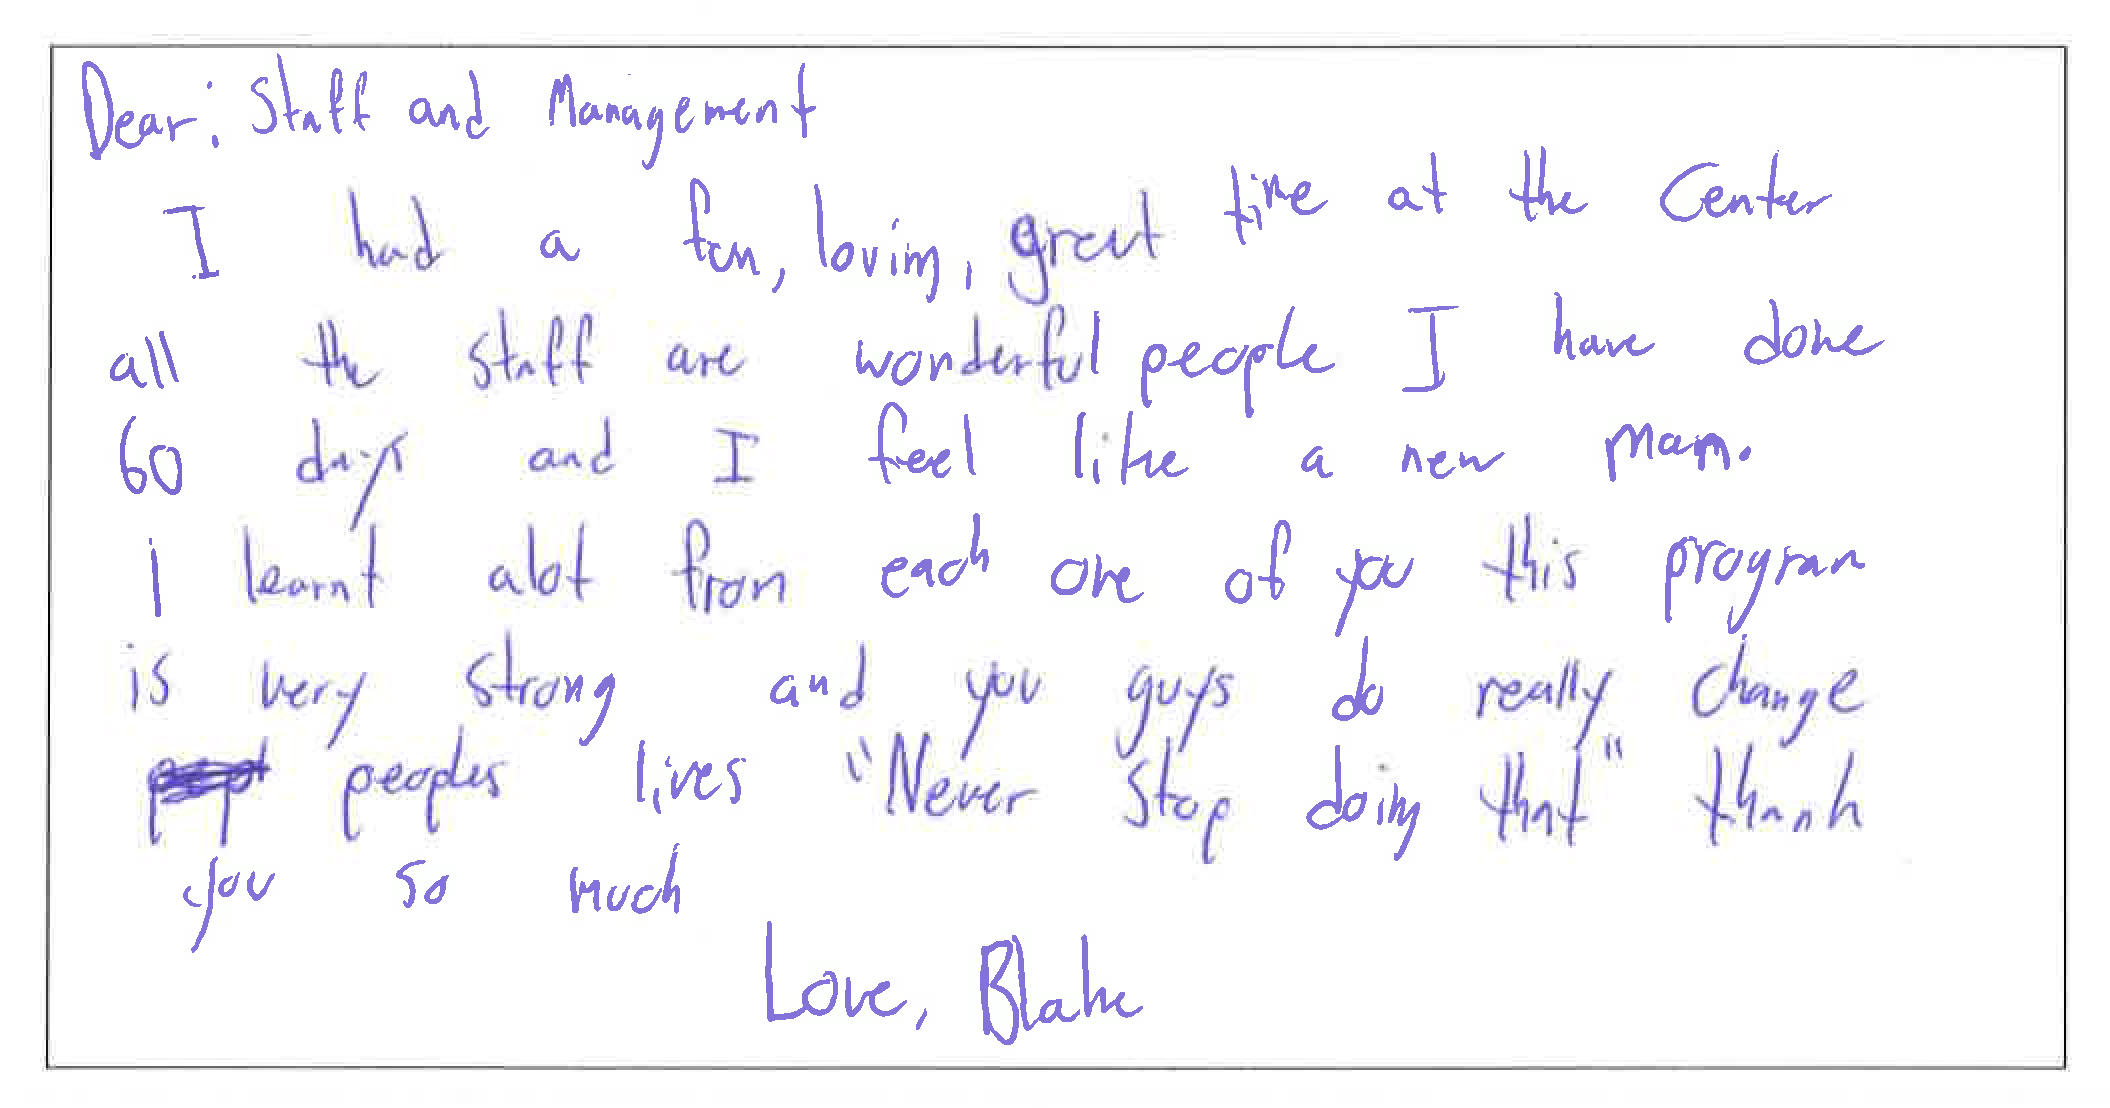 Dear: Staff and Management
I had a fun, loving, great time at the Center
all the staff are wonderful people I have done
60 days and I feel like a new man.
I learnt alot from each one of you this program
is very strong and you guys do really change
peoples lives "Never stop doing that" thank
you so much
Love, Blake